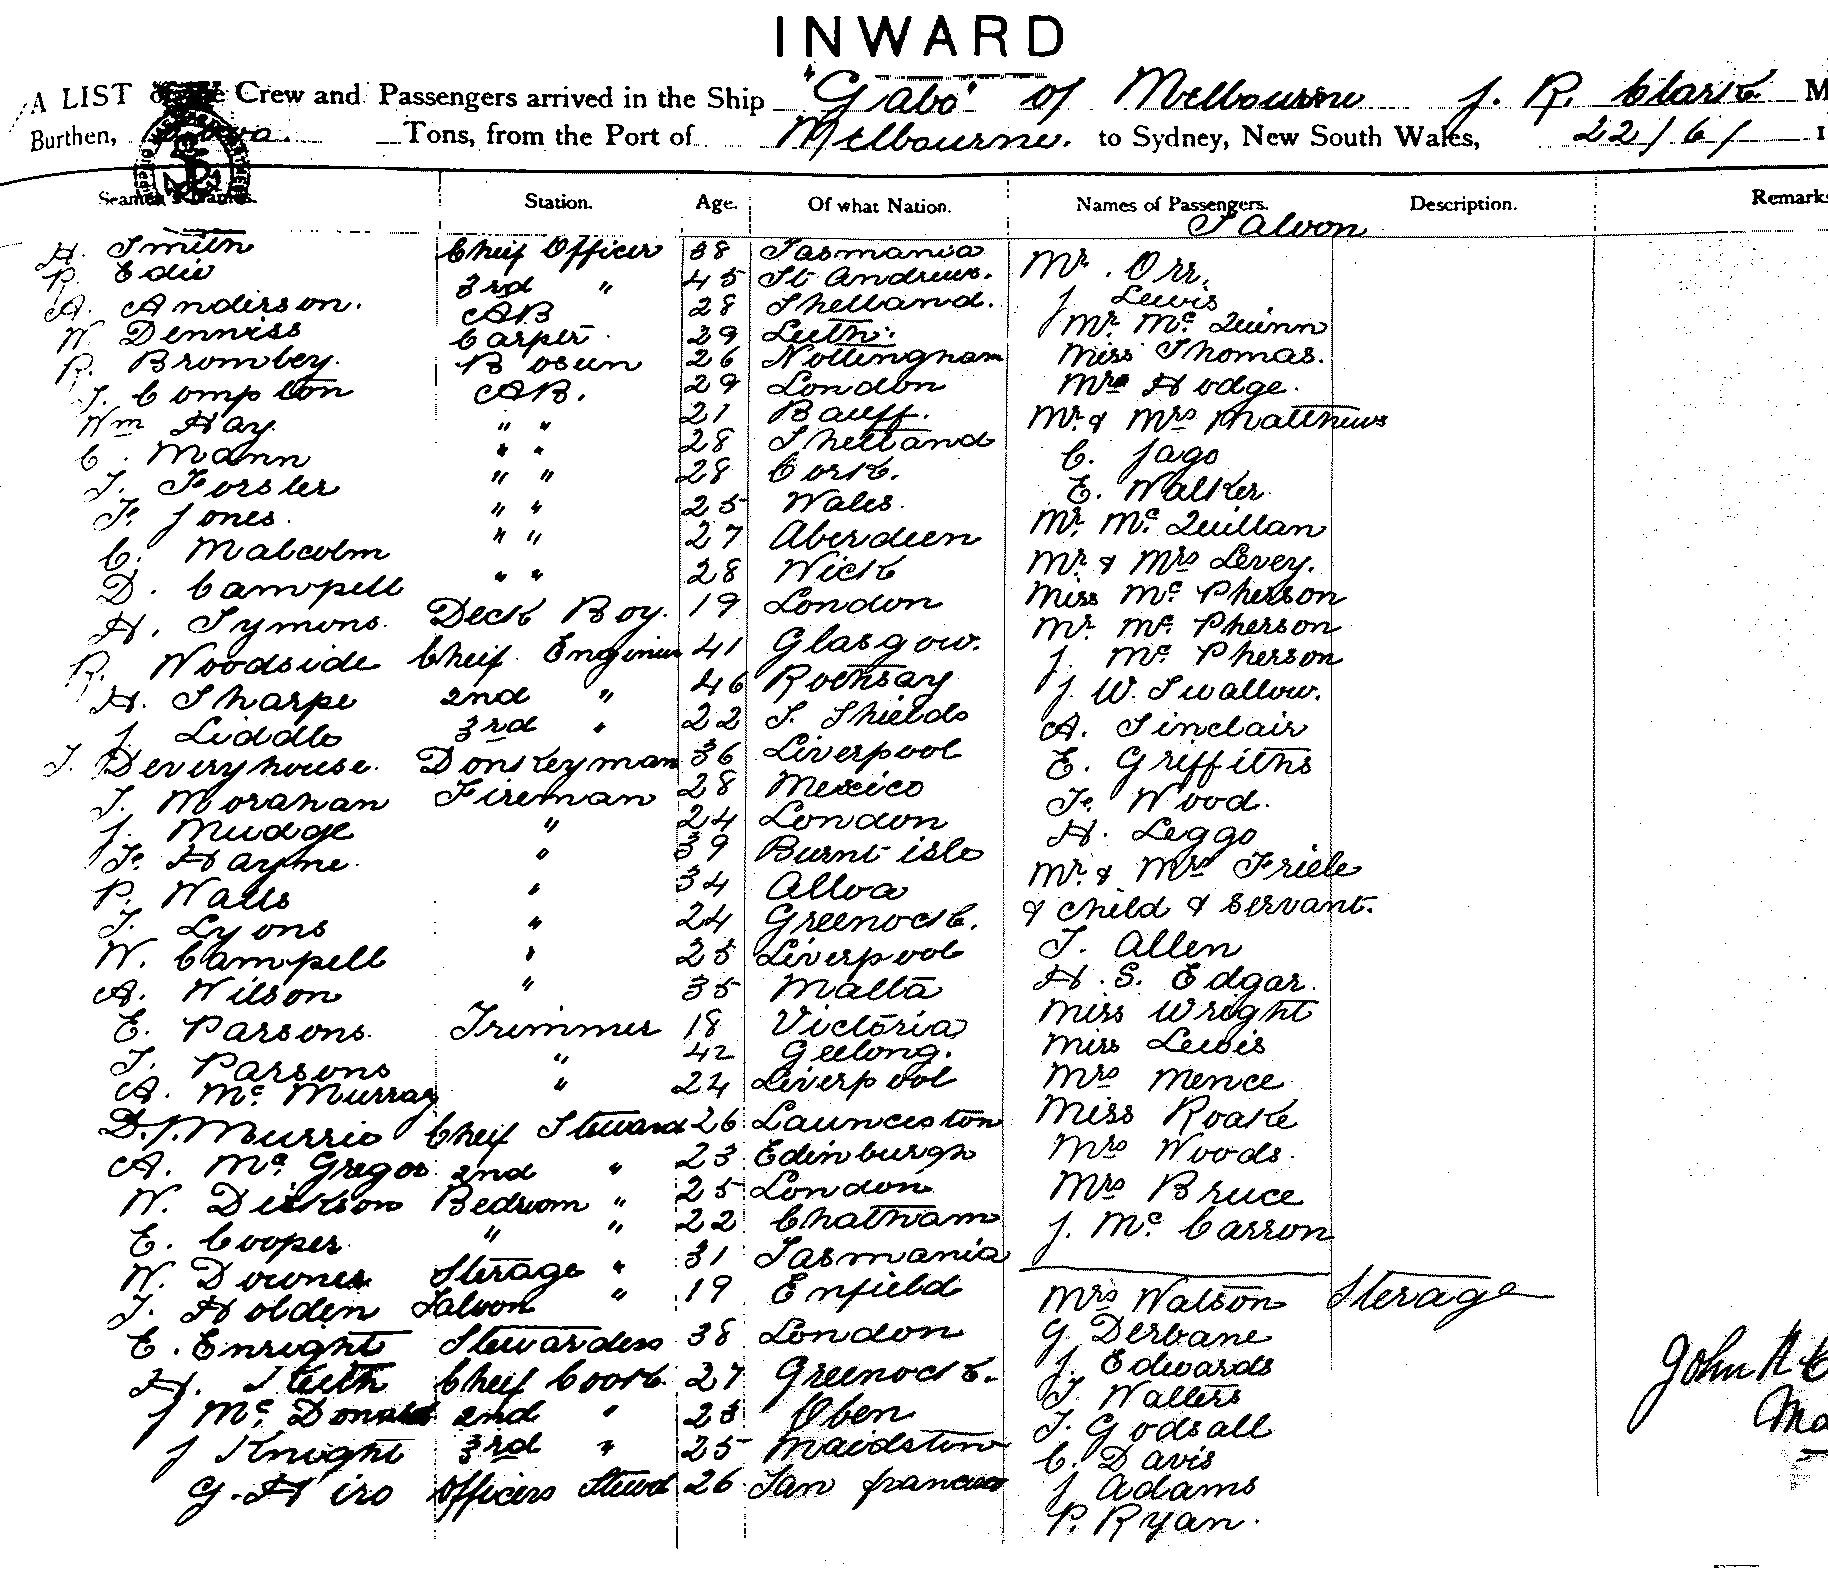 INWARD
A LIST of the Crew and Passengers arrived in the Ship "Gabo" of Melbourne J. R. Clark M
Burthen, Tons, from the Port of Melbourne. to Sydney, New South Wales, 22/6/ 1
Seamen's Names. Station. Age. Of what Nation. Names of Passengers. Description. Remarks
Saloon
H. Smith Cheif Officer 38 Tasmania Mr. Orr.
R. Edie 3rd " 45 St Andrews. J. Lewis
A. Anderson. AB 28 Shetland. Mr. Mc Quinn
W. Denniss Carptr 29 Leith. Miss Thomas.
R. Brombey. Bosun 26 Nottingham Mrs Hodge.
J. Compton AB. 29 London Mr & Mrs Matthews
Wm Hay. " " 21 Banff. C. Jago
C. Mann " " 28 Shetland E. Walker
T. Forster " " 28 Cork. Mr. Mc Quillan
F. Jones. " " 25 Wales. Mr & Mrs Levey.
C. Malcolm " " 27 Aberdeen Miss Mc Pherson
D. Campell " " 28 Wick Mr. Mc Pherson
H. Symons. Deck Boy. 19 London J. Mc Pherson
R. Woodside Cheif Enginier 41 Glasgow. J. W. Swallow.
H. Sharpe 2nd " 46 Rothsay A. Sinclair
J. Liddle 3rd " 22 S. Shields E. Griffiths
T. Deveryhouse. Donkeyman 36 Liverpool F. Wood.
T. Morahan Fireman 28 Mexico H. Leggo
J. Mudge " 24 London Mr. & Mrs Friele
F. Hayne. " 39 Burnt isle & child & servant.
P. Walls " 34 Alloa T. Allen
T. Lyons " 24 Greenock. H. S. Edgar.
W. Campell " 25 Liverpool Miss Wright
A. Wilson " 35 Malta Miss Lewis
E. Parsons. Trimmer 18 Victoria Mrs Mence
T. Parsons " 42 Geelong. Miss Roake
A. Mc Murray " 24 Liverpool Mrs Woods.
D. J. Murrie Cheif Steward 26 Launceston Mrs Bruce
A. Mc Gregor 2nd " 23 Edinburgh J. Mc Carron
W. Dickson Bedroom " 25 London
E. Cooper " " 22 Chatham
W. Downes Sterage " 31 Tasmania
T. Holden Saloon " 19 Enfield Mrs Watson Sterage
E. Enright Stewardess 38 London G. Derbane
H. Keith Cheif Cook 27 Greenock. J. Edwards
J Mc Donald 2nd " 23 Oben T. Walters
J Knight 3rd " 25 Maidston T. Godsall
G. Hiro Officers Stewd 26 San francisco C. Davis
J Adams
P. Ryan.
John R C
Ma